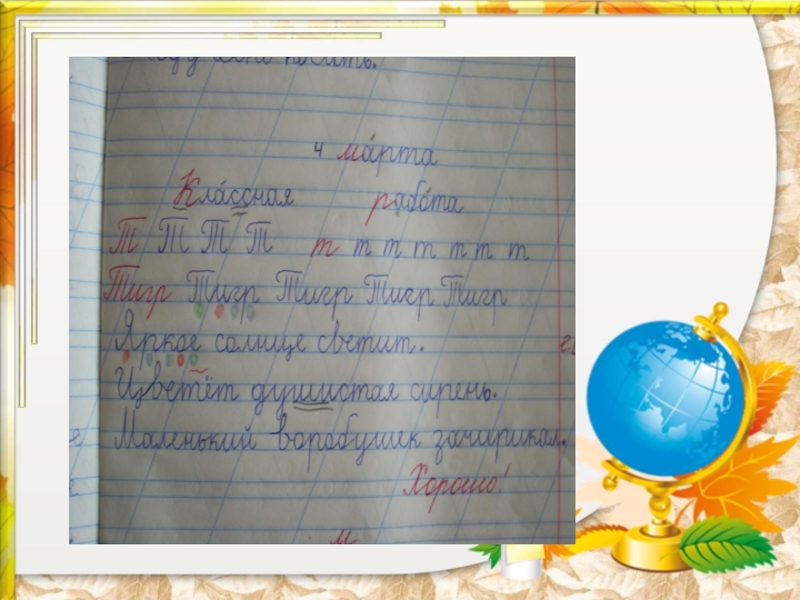 носить.
4 ма́рта
Кла́ссная рабо́та
Т Т Т Т т т т т т т т
Тигр Тигр Тигр Тигр Тигр
Яркое солнце светит.
Цветёт душистая сирень.
Маленький воробушек зачирикал.
Хорошо!
м